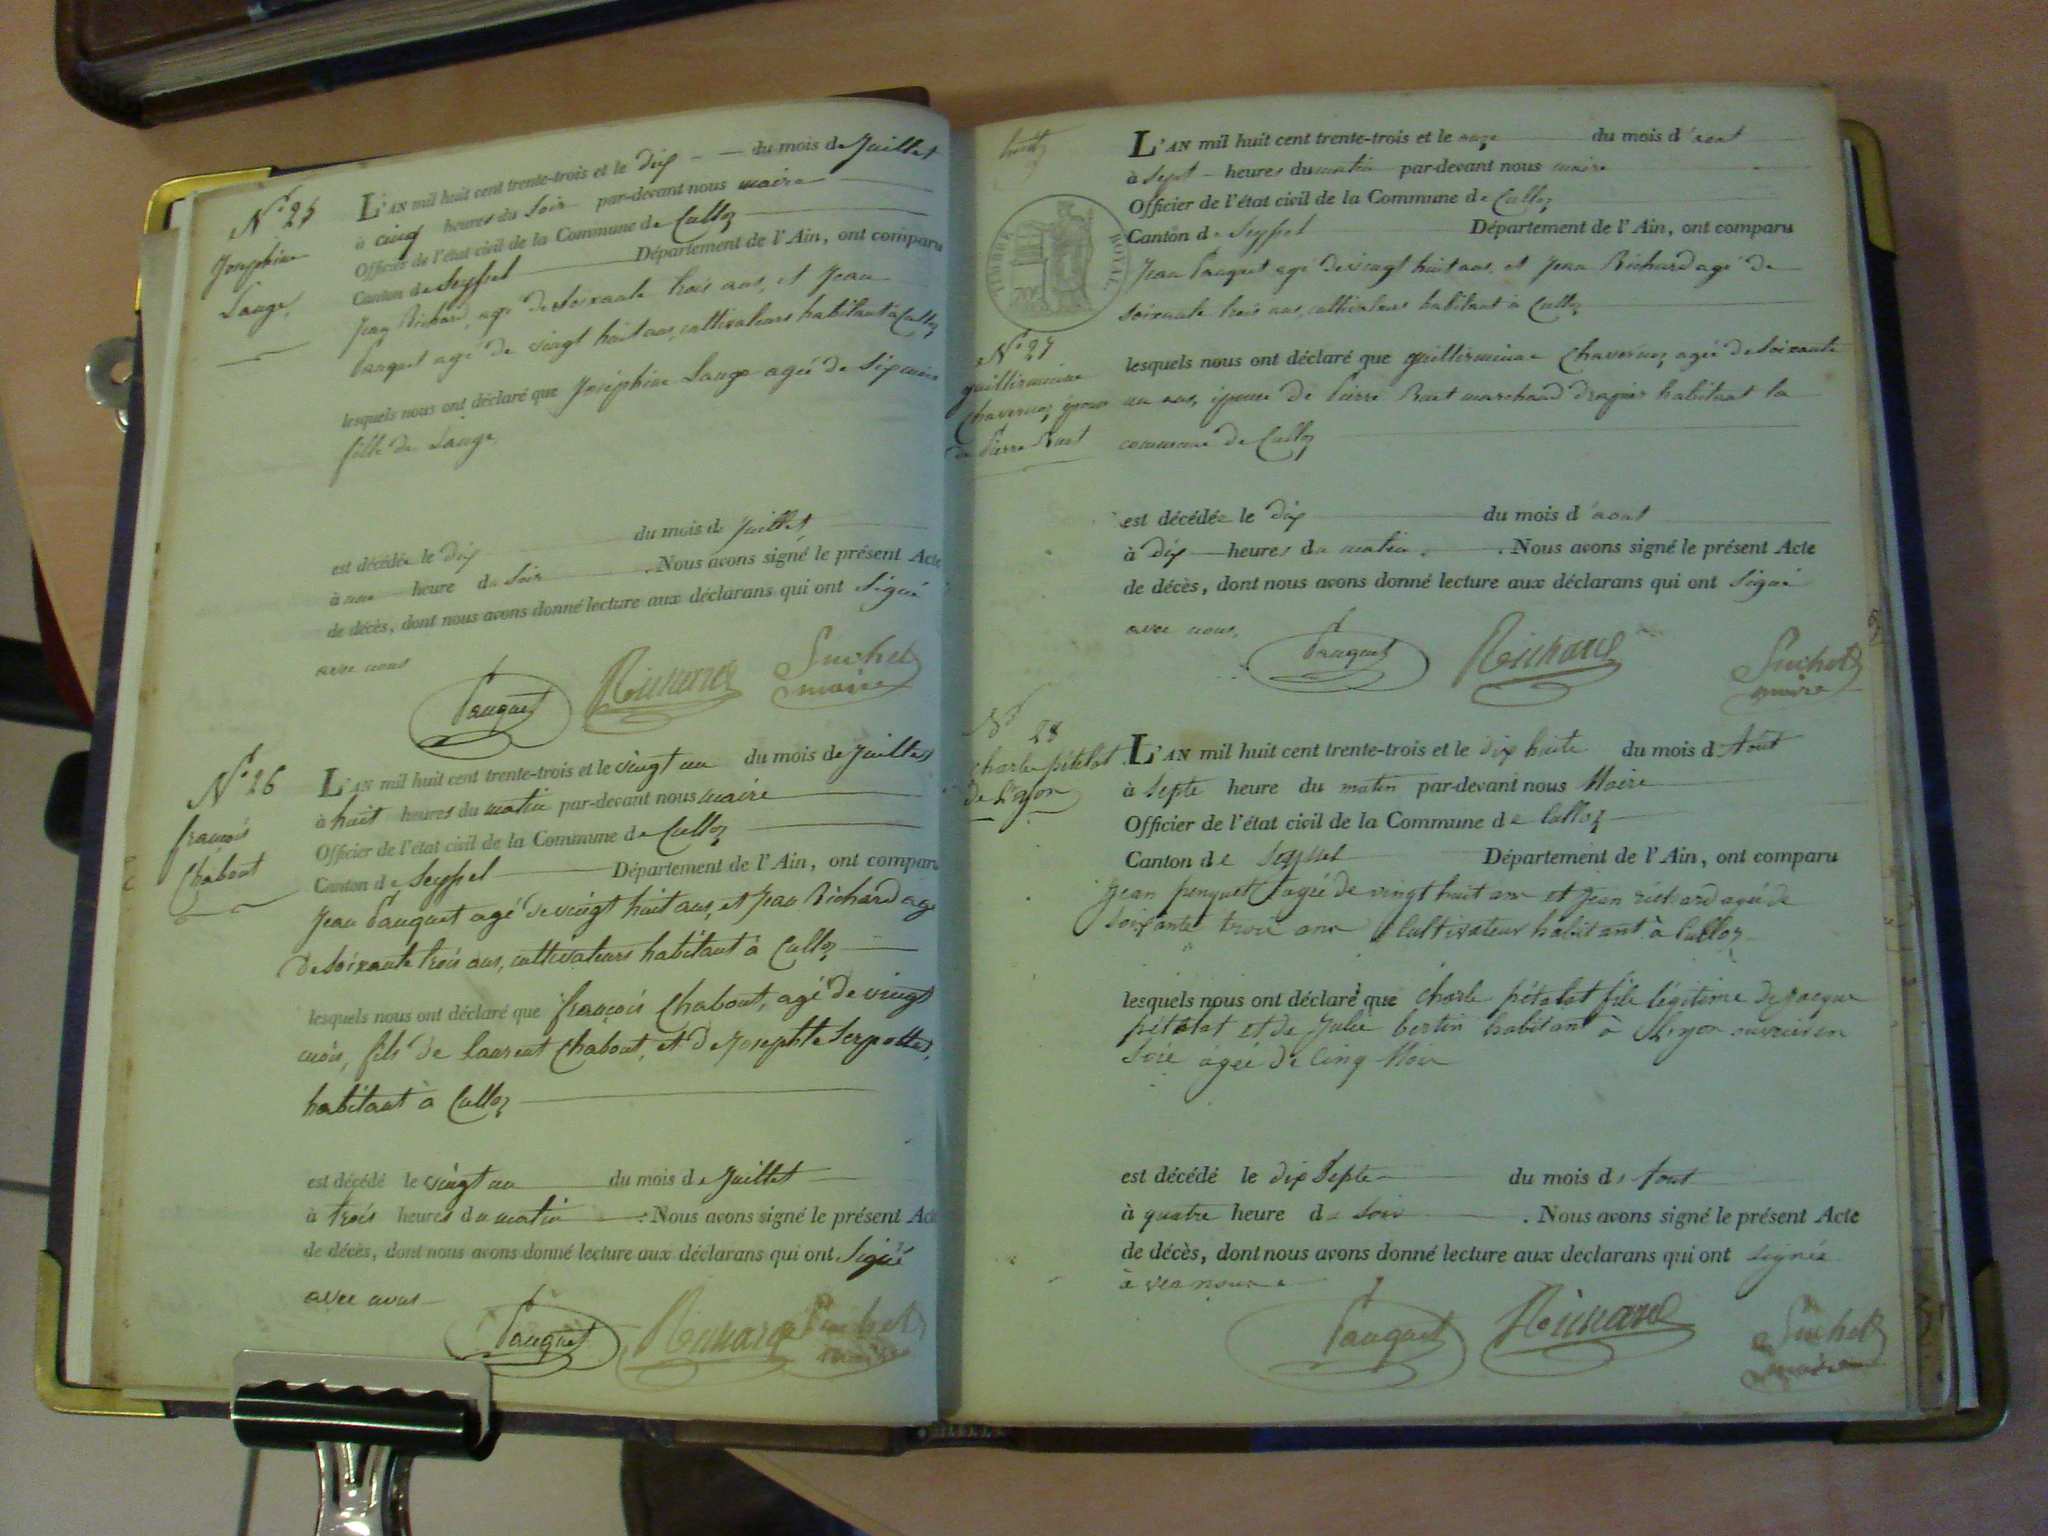 N° 25
Josephine
Lauge
L'AN mil huit cent trente-trois et le dix du mois de Juillet
à cinq heures du soir par-devant nous maire
Officier de l'état civil de la Commune de Culloz
Canton de Seyssel Département de l'Ain, ont comparu
Jean Richard, agé de soixante trois ans, et Jean
Pauquet agé de vingt huit ans, cultivateurs habitant à Culloz
lesquels nous ont déclaré que Joséphine Lauge agée de six mois
fille de Lauge
est décédée le dix du mois de Juillet
à une heure du soir . Nous avons signé le présent Acte
de décès, dont nous avons donné lecture aux déclarans qui ont signé
avec nous
Pauquet Richard Suchet
maire
N° 26
françois
Chabout
L'AN mil huit cent trente-trois et le vingt un du mois de Juillet
à huit heures du matin par-devant nous maire
Officier de l'état civil de la Commune de Culloz
Canton de Seyssel Département de l'Ain, ont comparu
Jean Pauquet agé de vingt huit ans, et Jean Richard agé
de soixante trois ans, cultivateurs habitant à Culloz
lesquels nous ont déclaré que françois Chabout, agé de vingt
mois, fils de Laurent Chabout, et de Josephte
habitant à Culloz
est décédé le vingt un du mois de Juillet
à trois heures du matin . Nous avons signé le présent Acte
de décès, dont nous avons donné lecture aux déclarans qui ont signé
avec nous
Pauquet Richard Suchet
maire
huit
TIMBRE ROYAL
L'AN mil huit cent trente-trois et le onze du mois d'aout
à sept heures du matin par-devant nous maire
Officier de l'état civil de la Commune de Culloz
Canton de Seyssel Département de l'Ain, ont comparu
Jean Pauquet agé de vingt huit ans, et Jean Richard agé de
soixante trois ans, cultivateurs habitant à Culloz
N° 27
guillermine
Chavernoz épouse
de Pierre Ruet
lesquels nous ont déclaré que guillermine Chavernoz agée de soixante
un ans, épouse de Pierre Ruet marchand drapier habitant la
commune de Culloz
est décédée le dix du mois d'aout
à dix heures du matin . Nous avons signé le présent Acte
de décès, dont nous avons donné lecture aux déclarans qui ont signé
avec nous,
Pauquet Richard Suchet
maire
N° 28
charle pételat
de Lyon
L'AN mil huit cent trente-trois et le dix huite du mois d'Aout
à septe heure du matin par-devant nous Maire
Officier de l'état civil de la Commune de Culloz
Canton de Seyssel Département de l'Ain, ont comparu
Jean penquet agée de vingt huit ans et Jean richard agée de
soixante trois ans Cultivateur habitant à Culloz
lesquels nous ont déclaré que charle pételat fils légitime de Jacque
pételat et de Julie bertin habitant à Lyon ouvrier en
soie agée de Cinq Mois
est décédé le dix septe du mois d'Aout
à quatre heure du soir . Nous avons signé le présent Acte
de décès, dont nous avons donné lecture aux déclarans qui ont signés
avec nous
Pauquet Richard Suchet
maire